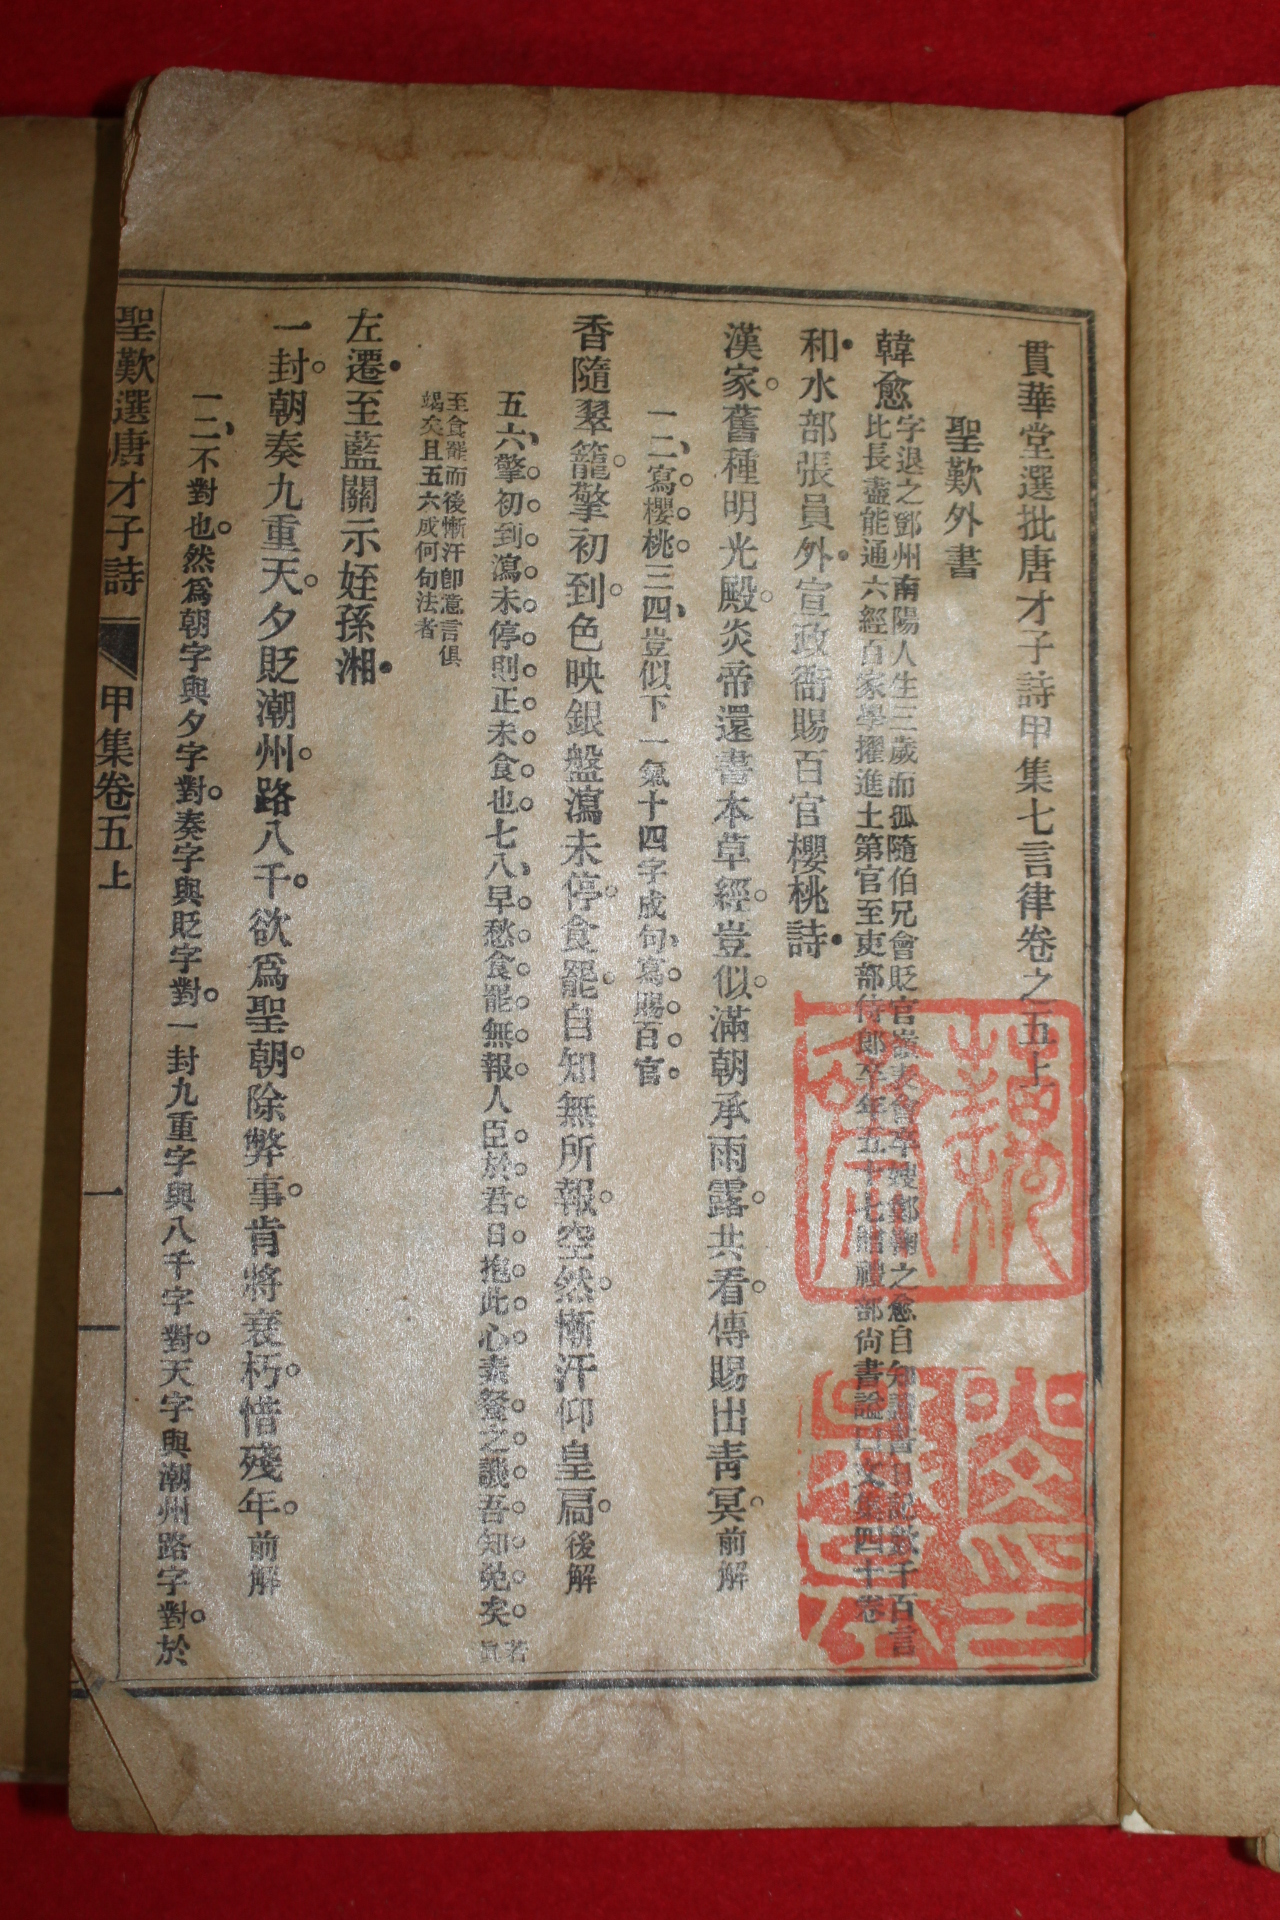 貫華堂選批唐才子詩甲集七言律卷之五上
聖歎外書
韓愈
字退之鄧州南陽人生三歲而孤隨伯兄會貶官嶺表會卒嫂鄭鞠之愈自知讀書日記數千百言
比長盡能通六經百家學擢進士第官至吏部侍郎卒年五十七贈禮部尚書謚曰文集四十卷
和水部張員外宣政衙賜百官櫻桃詩
漢家舊種明光殿炎帝還書本草經豈似滿朝承雨露共看傳賜出靑冥前解
一二寫櫻桃三四豈似下一氣十四字成句寫賜百官
香隨翠籠擎初到色映銀盤瀉未停食罷自知無所報空然慚汗仰皇扃後解
五六擎初到瀉未停則正未食也七八早愁食罷無報人臣於君日抱此心素餐之譏吾知免矣若眞
至食罷而後慚汗卽意言俱
竭矣且五六成何句法者
左遷至藍關示姪孫湘
一封朝奏九重天夕貶潮州路八千欲爲聖朝除弊事肯將衰朽惜殘年前解
一二不對也然爲朝字與夕字對奏字與貶字對一封九重字與八千字對天字與潮州路字對於
聖歎選唐才子詩
甲集卷五上
一